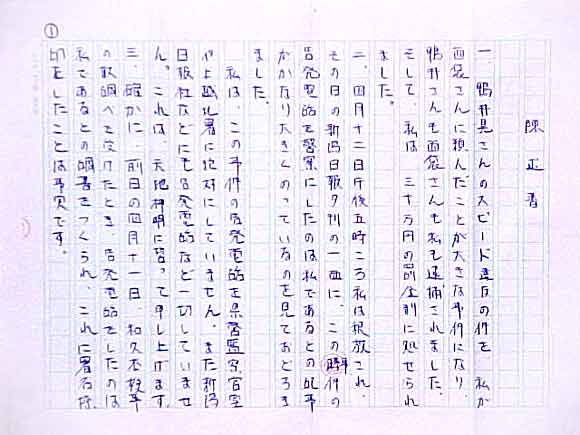 ①
陳述書
一、鴨井晃さんのスピード違反の件を 私が
西袋さんに頼んだことが大きな事件になり、
鴨井さんも西袋さんも私も逮捕されました。
そして、私は 三十万円の罰金刑に処せられ
ました。
二、四月十二日午後五時ころ私は釈放され、
その日の新潟日報夕刊の一面に、この事件の
告発電話を警察にしたのは私であるとの記事
がかなり大きくのっているのを見ておどろき
ました。
私は、この事件の告発電話を県警監察官室
や上越北署に絶対にしていません。また新潟
日報社などにも告発電話など一切していませ
ん。これは、天地神明に誓って申し上げます。
三、確かに、前日の四月十一日、和久本検事
の取調べを受けたとき、告発電話をしたのは
私であるとの調書をつくられ、これに署名捺
印をしたことは事実です。